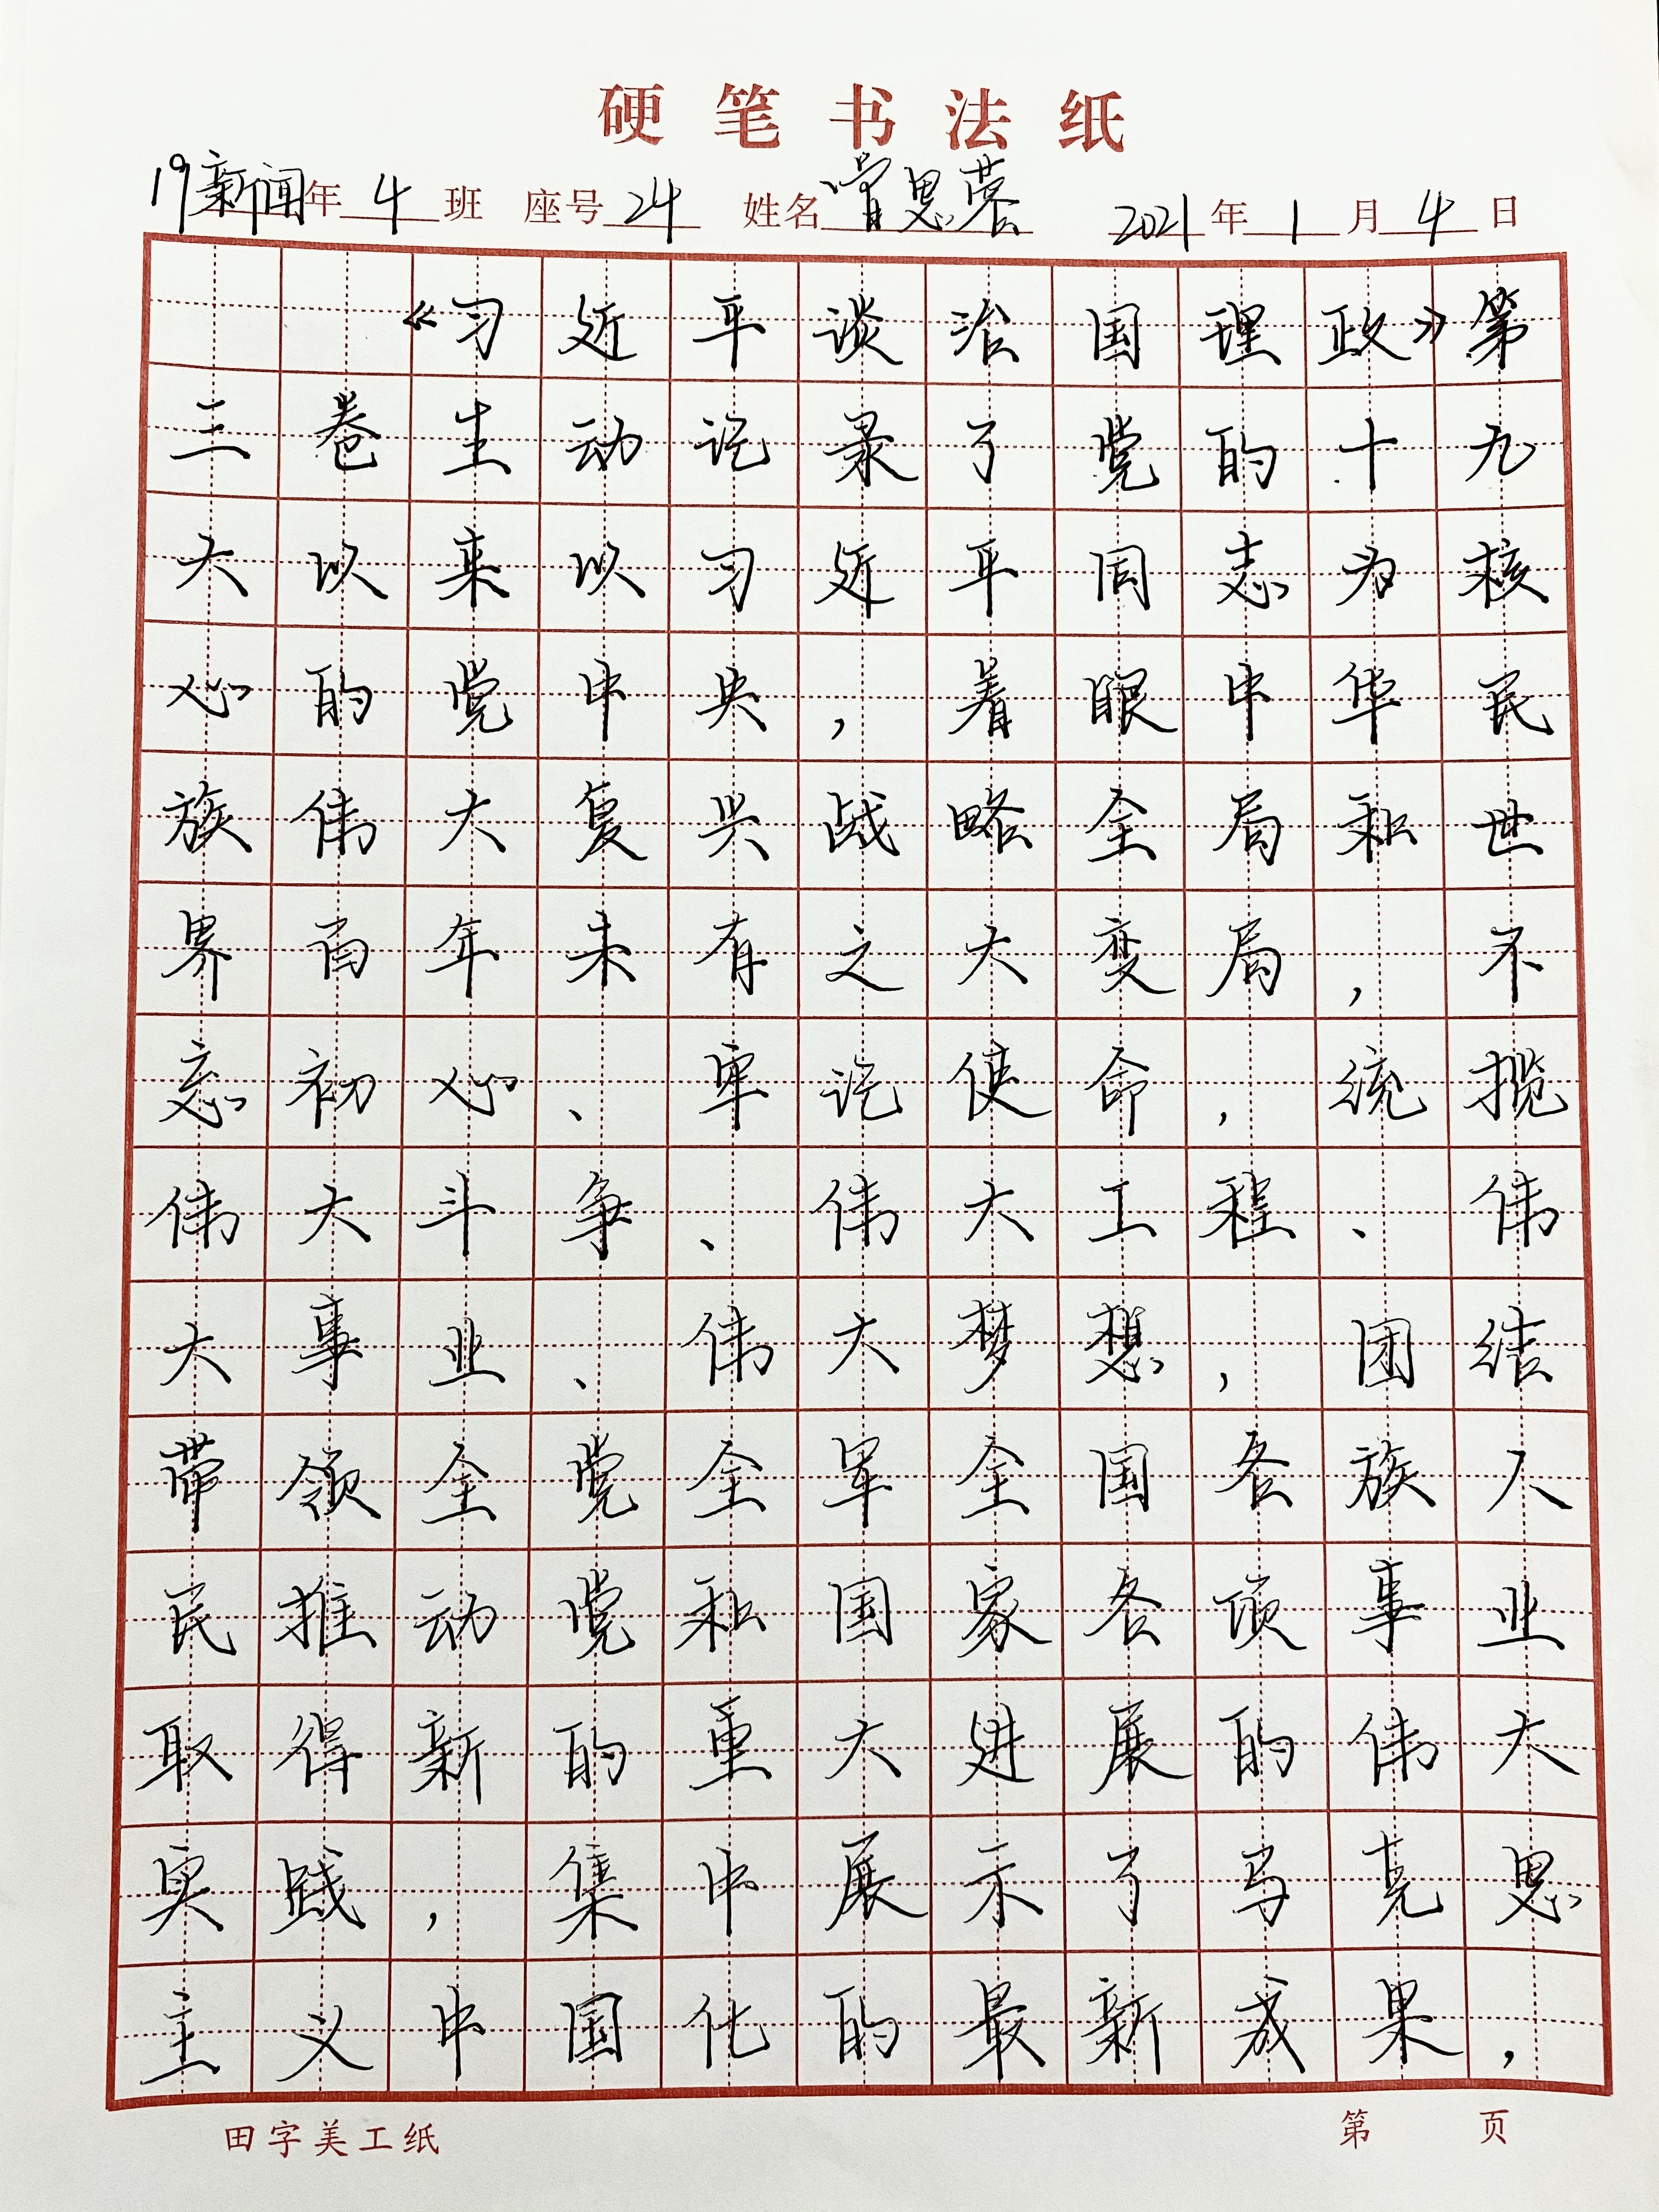 硬笔书法纸
19新闻年4班 座号24 姓名曾思蓉 2021年1月4日
《习近平谈治国理政》第
三卷生动记录了党的十九
大以来以习近平同志为核
心的党中央，着眼中华民
族伟大复兴战略全局和世
界百年未有之大变局，不
忘初心、牢记使命，统揽
伟大斗争、伟大工程、伟
大事业、伟大梦想，团结
带领全党全军全国各族人
民推动党和国家各项事业
取得新的重大进展的伟大
实践，集中展示了马克思
主义中国化的最新成果，
田字美工纸 第 页